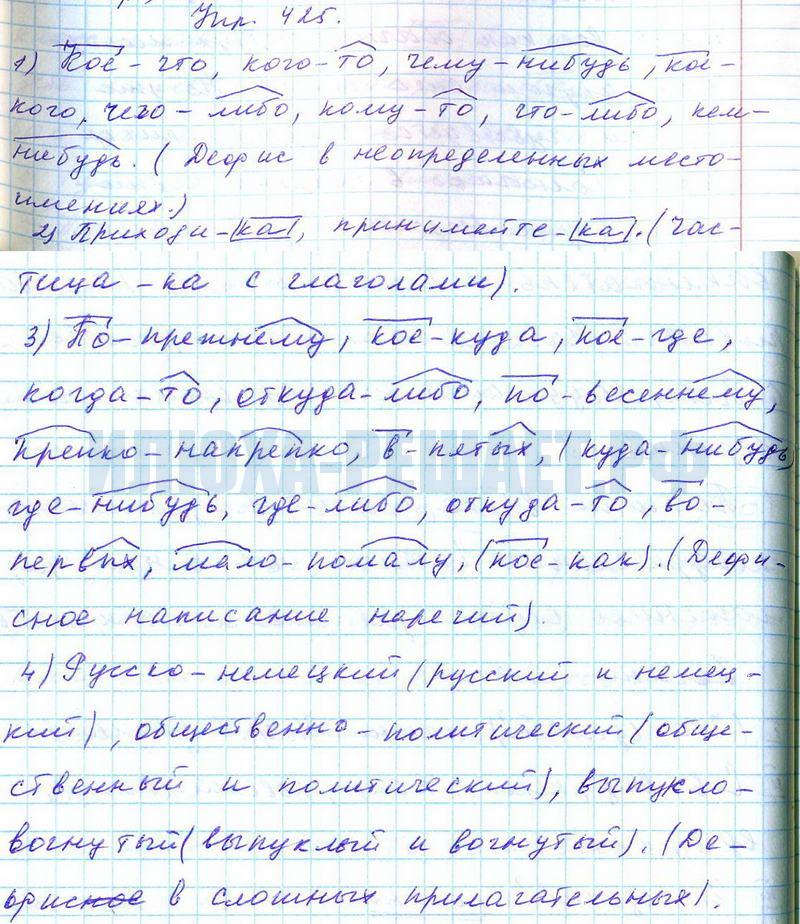 Упр. 425.
1) Кое-что, кого-то, чему-нибудь, кое-
кого, чего-либо, кому-то, что-либо, кем-
нибудь. (Дефис в неопределенных место-
имениях.)
2) Приходи-ка, принимайте-ка. (Час-
тица -ка с глаголами).
3) По-прежнему, кое-куда, кое-где,
когда-то, откуда-либо, по-весеннему,
крепко-накрепко, в-пятых, (куда-нибудь)
ИЛЮХА-РЕШАЕТ.РФ
где-нибудь, где-либо, откуда-то, во-
первых, мало-помалу, (кое-как). (Дефи-
сное написание наречий).
4) Русско-немецкий (русский и немец-
кий), общественно-политический (обще-
ственный и политический), выпукло-
вогнутый (выпуклый и вогнутый). (Де-
фисное в сложных прилагательных).